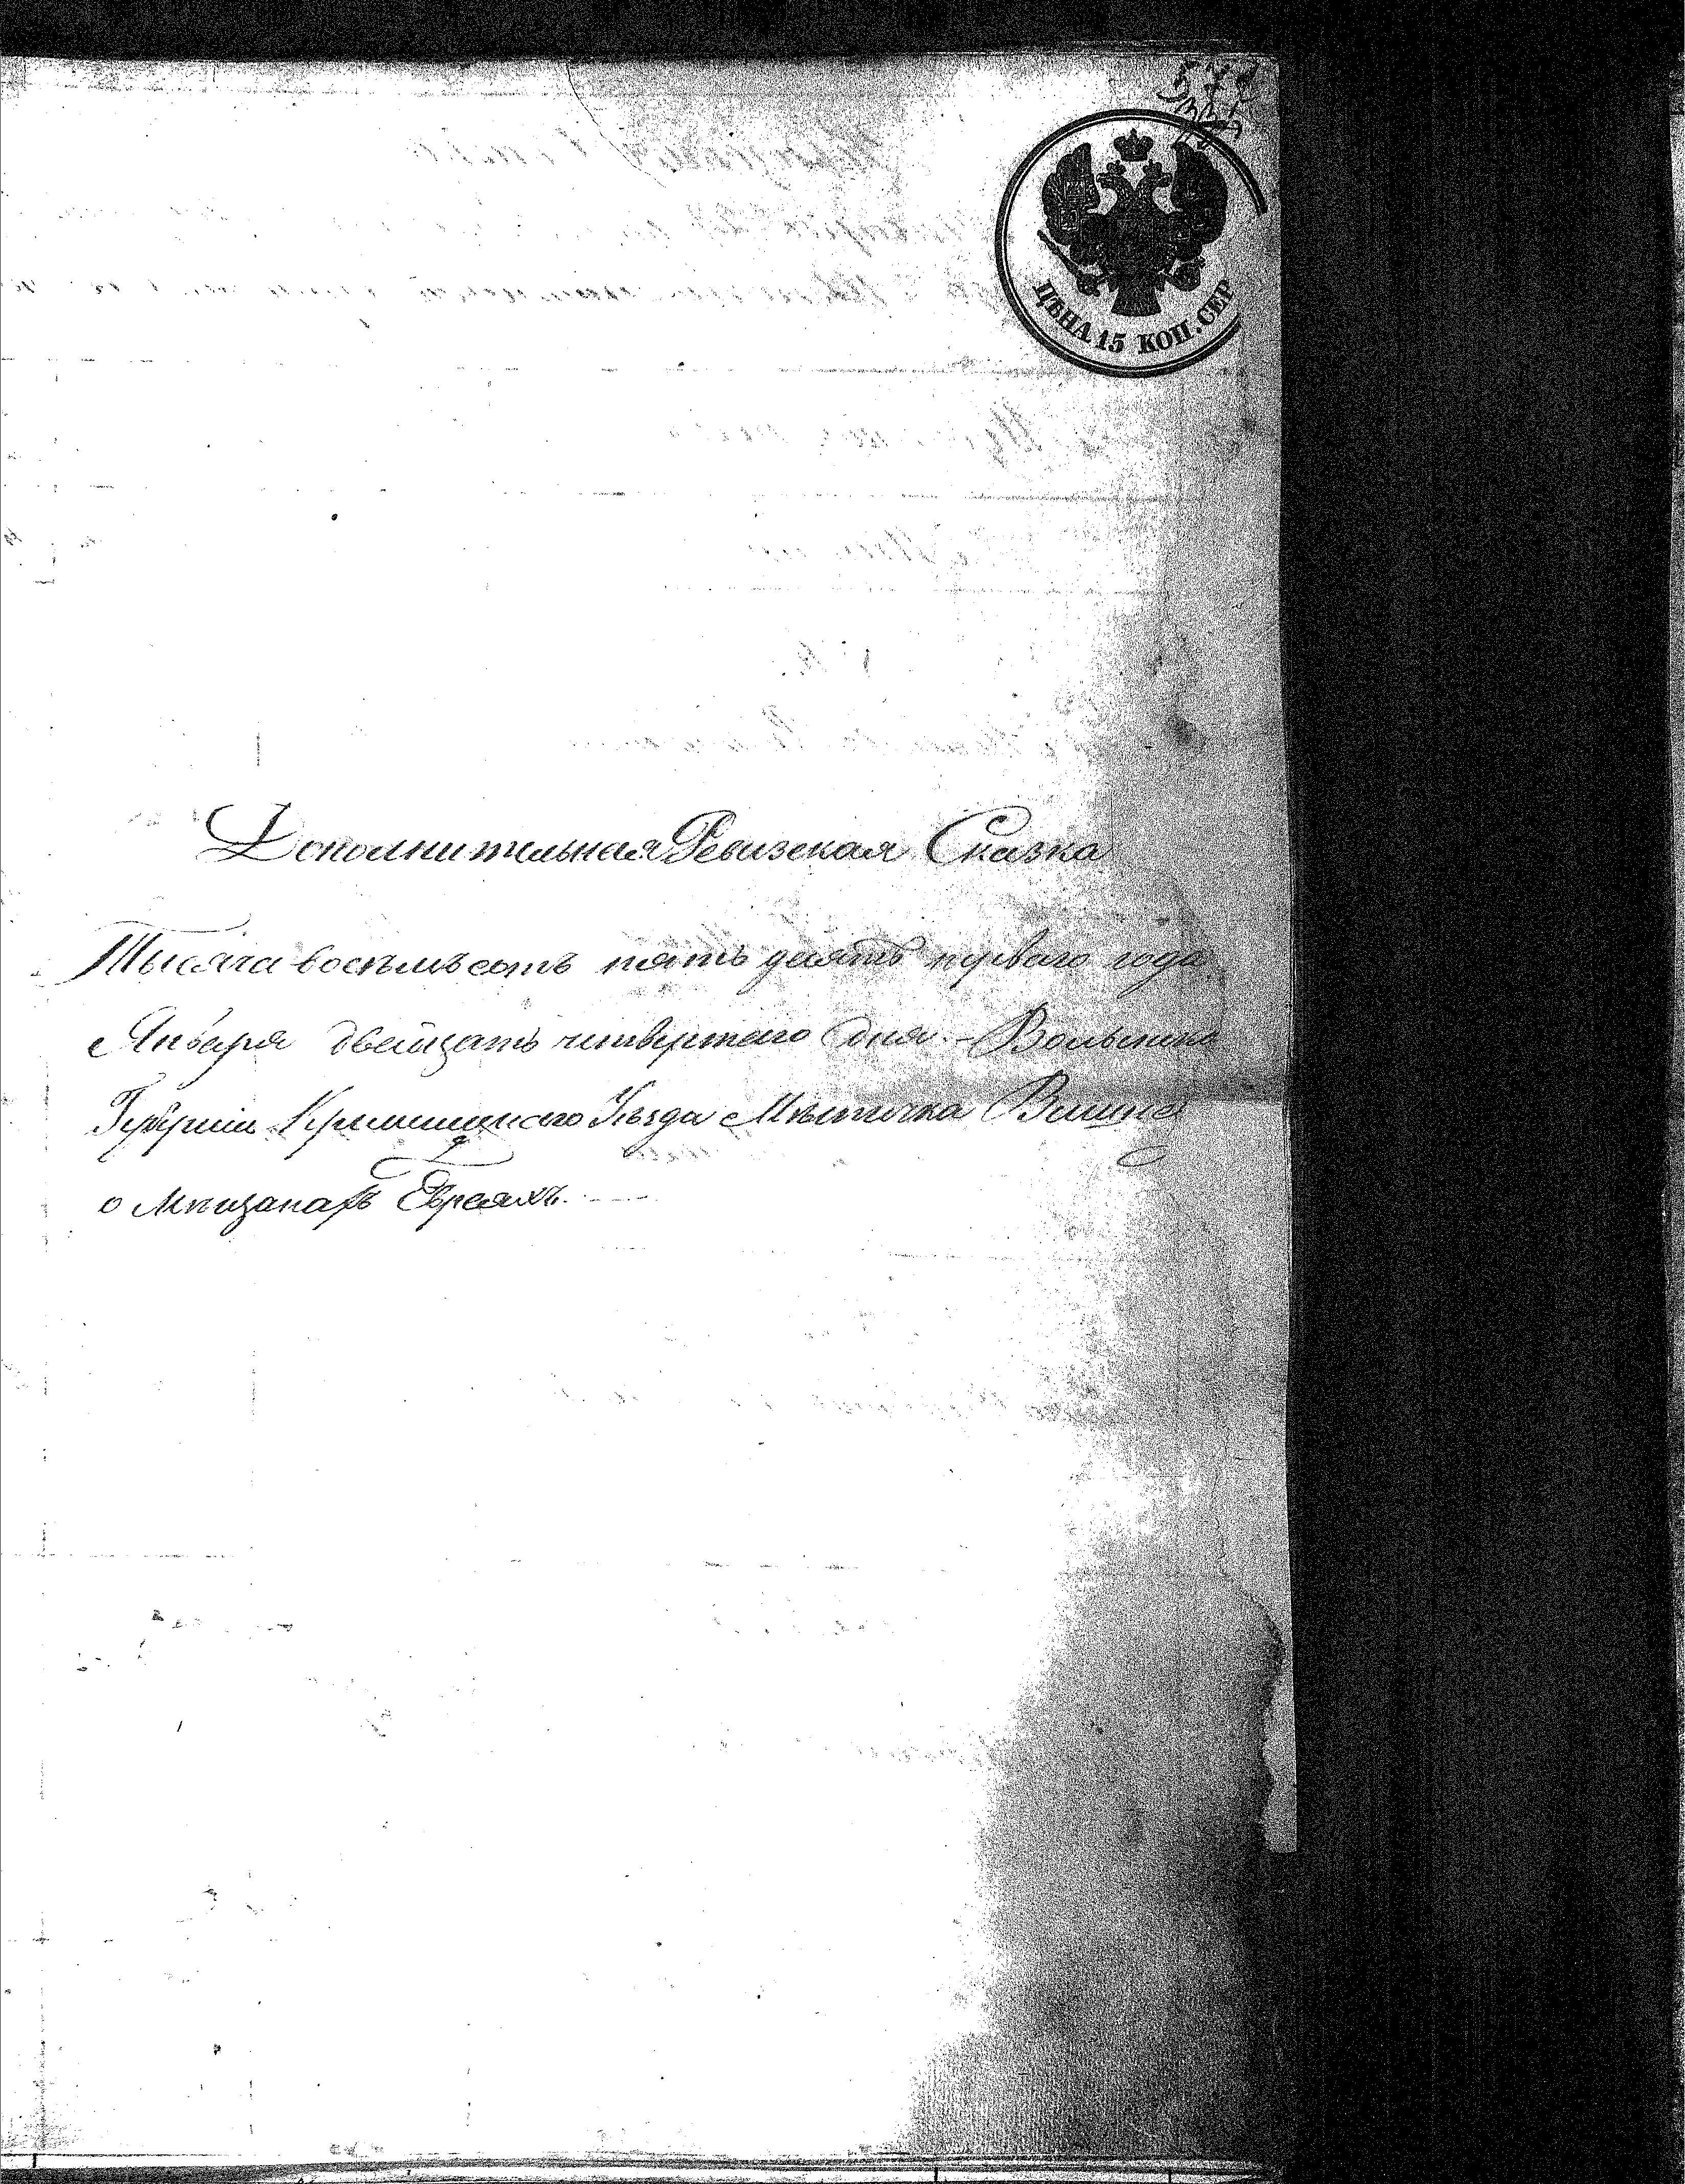 ЦѢНА 15 КОП. СЕР
Дополнительная Ревизская Сказка
Тысяча восемьсотъ пятьдесятъ перваго года
Января двадцать четвертаго дня - Волынско
Губерніи Кременецкаго Уѣзда Мѣстечка
о Мѣщанахъ Евреяхъ.